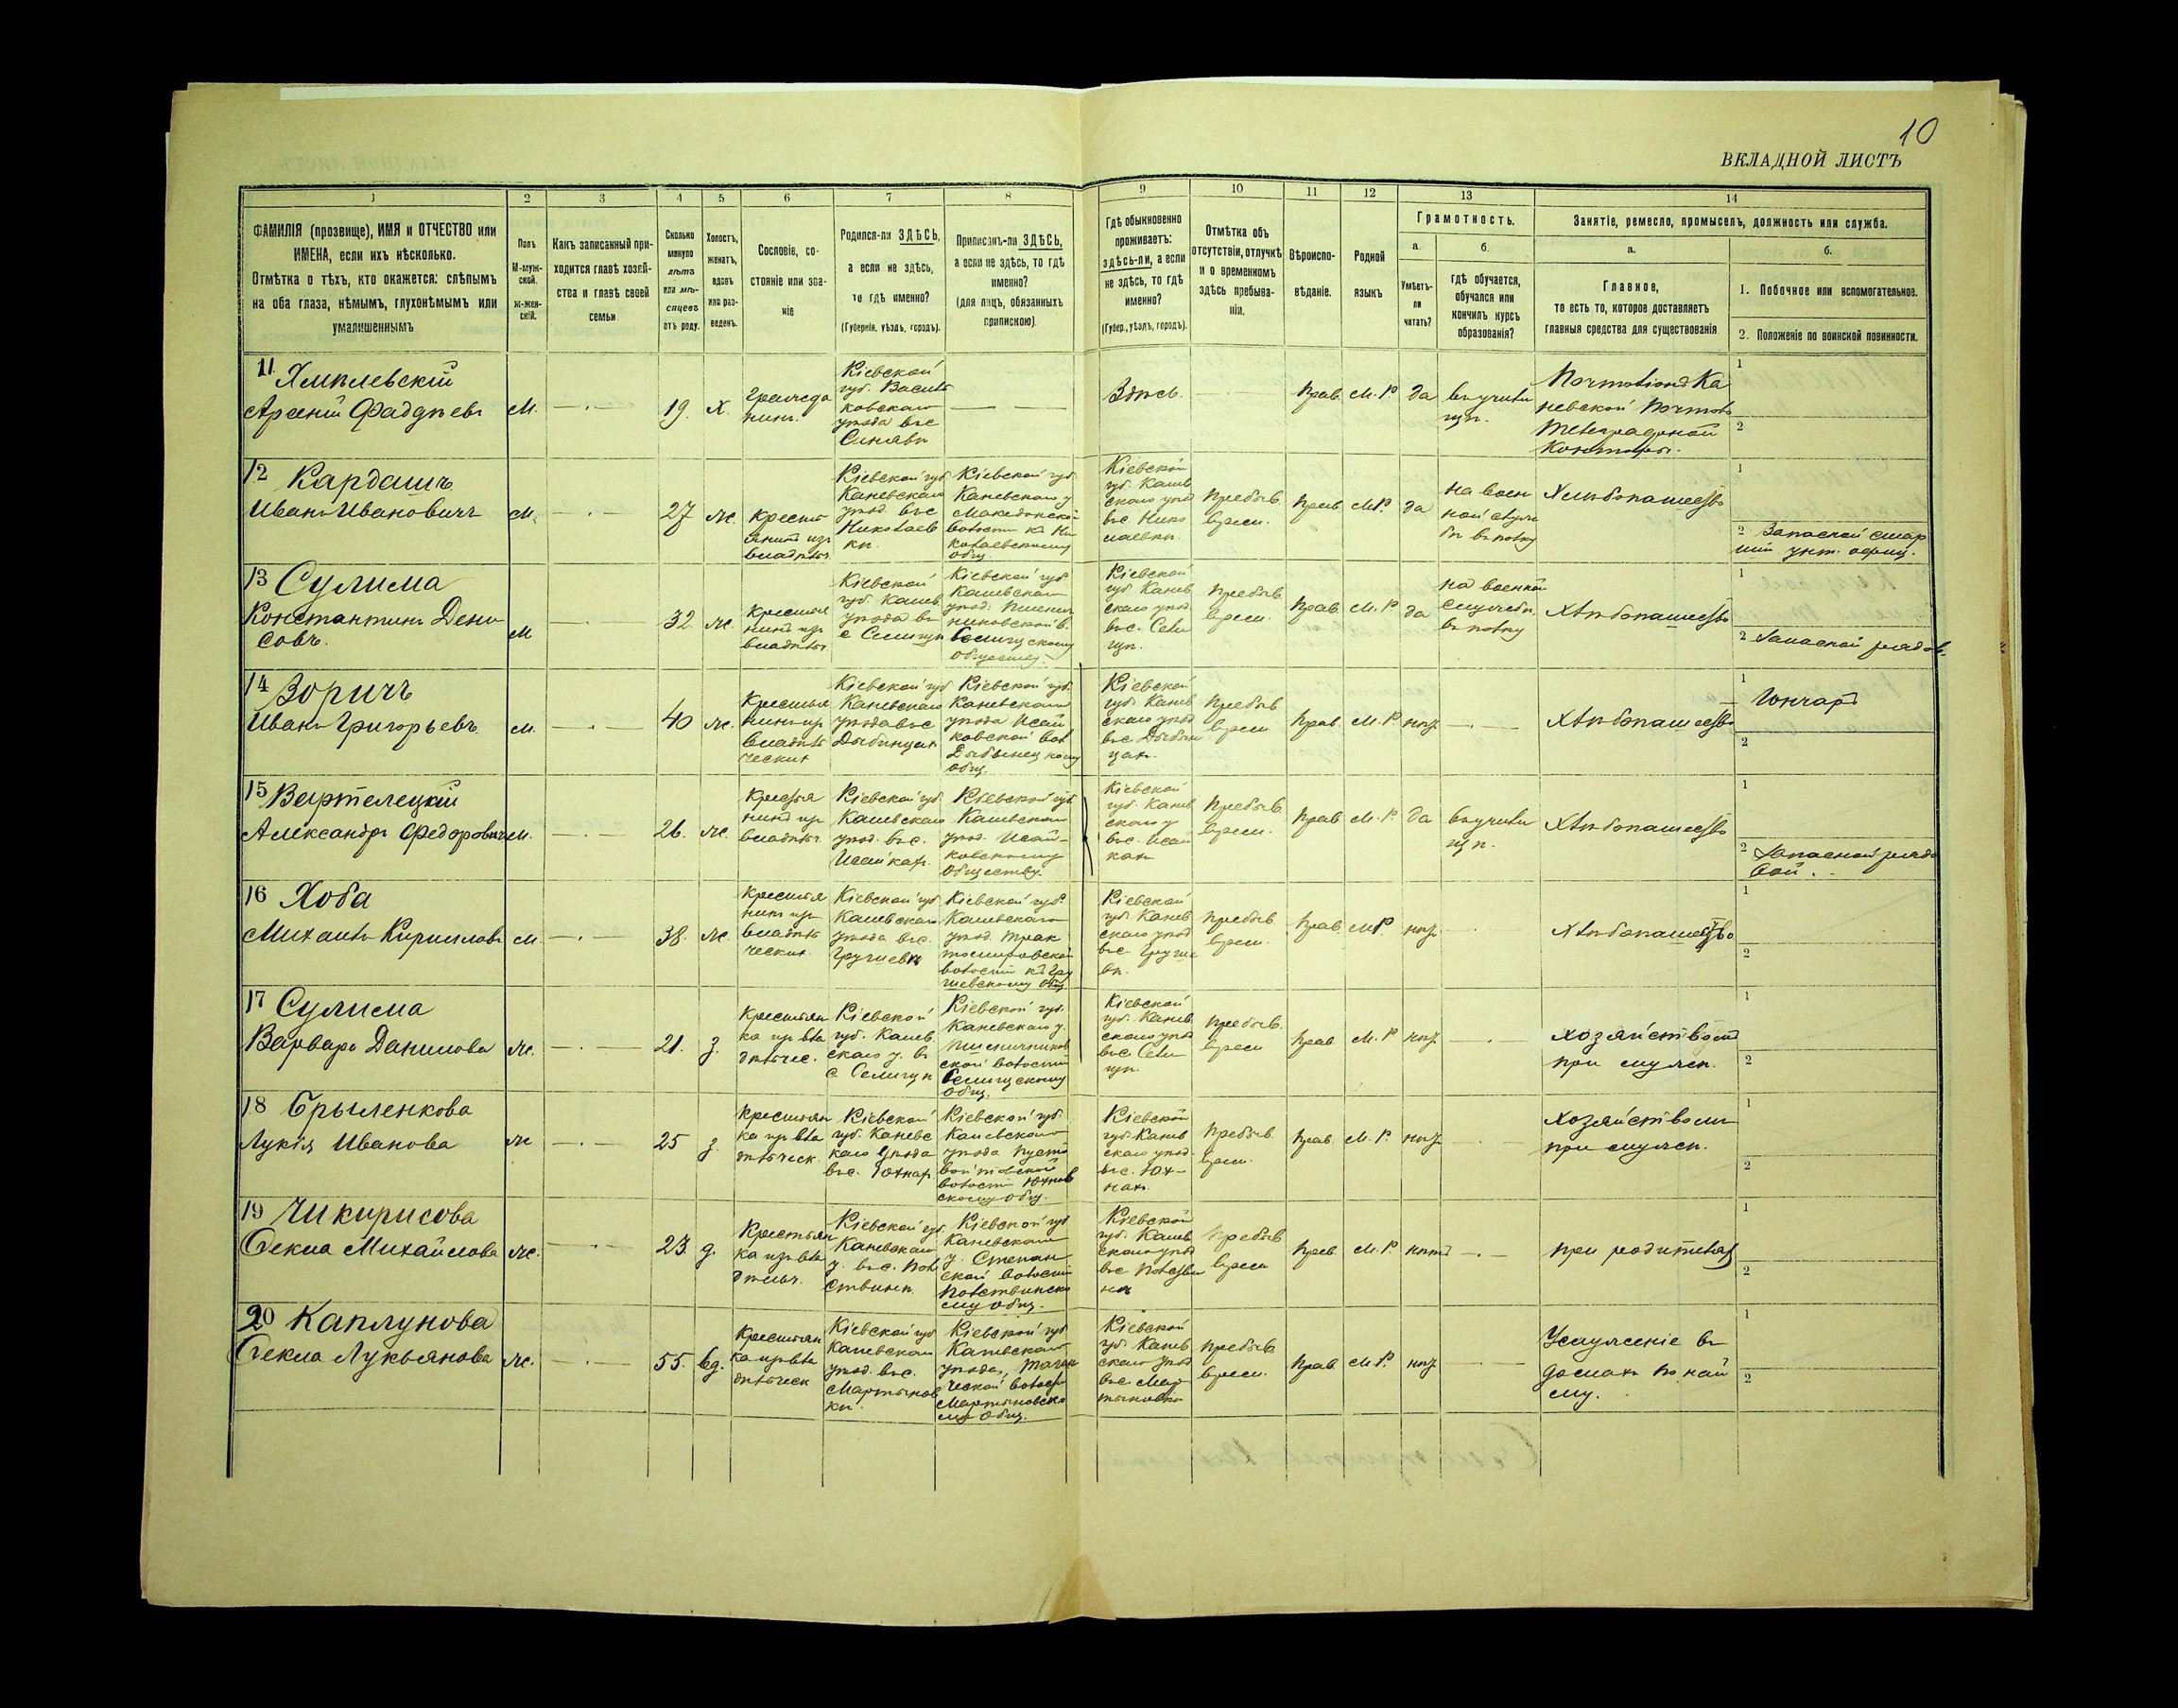 10
ВКЛАДНОЙ ЛИСТЪ
1
2
3
4
5
6
7
8
9
10
11
12
13
14
ФАМИЛІЯ (прозвище), ИМЯ и ОТЧЕСТВО или
ИМЕНА, если ихъ нѣсколько.
Отмѣтка о тѣхъ, кто окажется: слѣпымъ
на оба глаза, нѣмымъ, глухонѣмымъ или
умалишеннымъ
Полъ
М-муж-
ской.
ж-жен-
скій.
Какъ записанный при-
ходится главѣ хозяй-
ства и главѣ своей
семьи
Сколько
минуло
лѣтъ
или мѣ-
сяцевъ
отъ роду.
Холостъ,
женатъ,
вдовъ
или раз-
веденъ.
Сословіе, со-
стояніе или зва-
ніе
Родился-ли ЗДѢСЬ,
а если не здѣсь,
то гдѣ именно?
(Губернія, уѣздъ, городъ).
Приписанъ-ли ЗДѢСЬ,
а если не здѣсь, то гдѣ
именно?
(для лицъ, обязанныхъ
припискою).
Гдѣ обыкновенно
проживаетъ:
здѣсь-ли, а если
не здѣсь, то гдѣ
именно?
(Губер., уѣздъ, городъ).
Отмѣтка объ
отсутствіи, отлучкѣ
и о временномъ
здѣсь пребыва-
ніи.
Вѣроиспо-
вѣданіе.
Родной
языкъ
Грамотность.
а.
Умѣетъ-
ли
читать?
б.
гдѣ обучается,
обучался или
кончилъ курсъ
образованія?
Занятіе, ремесло, промыселъ, должность или служба.
а.
Главное,
то есть то, которое доставляетъ
главныя средства для существованія
б.
1. Побочное или вспомогательное.
2. Положеніе по воинской повинности.
11 Хмѣлевскій
Арсеній Фаддѣевъ
М.
19.
Х.
гражда
нинъ.
Кіевской
губ. Василь
ковскаго
уѣзда въ с
Синявѣ
Здѣсь.
Прав.
М. Р.
да
въ учили
щѣ.
Почталіонъ Ка
невской Почтово
Телеграфной
Конторы.
1
2
12 Кардашъ
Иванъ Ивановичъ
М.
27
же.
Кресть
янинъ изъ
владѣльч.
Кіевской губ
Каневскаго
уѣзд. въ с
Николаев
кѣ.
Кіевской губ.
Каневскаго у.
Македонской
волости къ Ни
колаевскому
общ.
Кіевской
губ. Канев
скаго уѣзд
въ с. Нико
лаевкѣ.
Пребыв.
врем.
Прав.
М. Р.
да
на воен
ной служ
бѣ въ полку
Хлѣбопашество
1
2 Запасной стар
шій унт. офиц.
13 Сулима
Константинъ Дени
совъ.
М
32.
же.
Крестья
нинъ изъ
владѣльч
Кіевской
губ. Канев
уѣзда въ
с Селищѣ
Кіевской губ
Каневскаго
уѣзд.
Селищскому
обществу.
Кіевской
губ Канев
скаго уѣзд.
въ с. Сели
щѣ.
Пребыв.
врем.
Прав.
М. Р
да
на военной
службѣ
въ полку
Хлѣбопашество
1
2 Запасной рядов.
14 Зоричъ
Иванъ Григорьевъ
М.
40
же.
Крестья
нинъ изъ
владѣль
ческихъ
Кіевской губ
Каневскаго
уѣзда въ с
Дыбинцахъ
Кіевской губ.
Каневскаго
уѣзда Исай
ковской вол
Дыбинецкому
общ.
Кіевской
губ. Канев
скаго уѣзд
въ с Дыбин
цахъ.
Пребыв
врем
Прав.
М. Р
нѣтъ
Хлѣбопашество
1
Гончаръ
2
15 Вертелецкій
Александръ Федоровичъ
М.
26.
же.
Крестья
нинъ изъ
владѣльч.
Кіевской губ.
Каневскаго
уѣзд. въ с.
Исайкахъ.
Кіевской губ
Каневскаго
уѣзд. Исай-
ковскому
Обществу.
Кіевской
губ. Канев
скаго у
въ с. Исай
кахъ
Пребыв
врем.
Прав
М. Р.
да
въ учили
щѣ.
Хлѣбопашество
1
2 Запасной рядо
вой.
16 Хоба
Михаилъ Кирилловъ
М
38.
же.
Крестья
нинъ изъ
владѣль
ческихъ.
Кіевской губ
Каневскаго
уѣзда въ с.
Грушевѣ
Кіевской губ.
Каневскаго
уѣзд. Трак
томировской
волости къ Гру
шевскому общ.
Кіевской
губ. Канев
скаго уѣзд
въ с. Груше
вѣ.
Пребыв.
врем.
Прав.
М Р.
нѣтъ
Хлѣбопашество
1
2
17 Сулима
Варвара Данилова
же.
21.
з.
Крестьян
ка изъ вла
дѣльчес.
Кіевской
губ. Канев
скаго у. въ
с Селищѣ
Кіевской губ.
Каневскаго у.
Пшеничников
ской волости
Селищскому
общ.
Кіевской
губ. Канев
скаго уѣзд
въ с. Сели
щѣ.
Пребыв.
врем
Прав.
М. Р
нѣтъ
Хозяйствомъ
при мужѣ.
1
2
18 Брыленкова
Лукія Иванова
же
25
з.
Крестьян
ка изъ вла
дѣльческ.
Кіевской
губ. Каневс
каго уѣзда
въ с. Юхнахъ
Кіевской губ.
Каневскаго
уѣзда Пусто
войтовской
волости Юхнов
скому общ.
Кіевской
губ. Канев
скаго уѣзд.
въ с. Юх-
нахъ.
Пребыв.
врем.
Прав.
М. Р.
нѣтъ
Хозяйствомъ
при мужѣ.
1
2
19 Чикирисова
Ѳекла Михайлова
же.
23
д.
Крестьян
ка изъ вла
дѣльч.
Кіевской губ
Каневскаго
у. въ с. Пол
ствинѣ
Кіевской губ
Каневскаго
у. Степан
ской волости
Полствинско
му общ.
Кіевской
губ. Канев
скаго уѣзд
въ с Полстви
нѣ
Пребыв
врем
Прав.
М. Р.
нѣтъ
при родителяхъ
1
2
20 Каплунова
Ѳекла Лукьянова
же.
55.
вд.
Крестьян
ка изъ вла
дѣльческ
Кіевской губ
Каневскаго
уѣзд. въ с.
Мартынов
кѣ.
Кіевской губ
Каневскаго
уѣзда, Таган
ческой волости
Мартыновско
му общ.
Кіевской
губ. Канев
скаго уѣзд
въ с. Мар
тыновкѣ
Пребыв
врем.
Прав.
М. Р.
нѣтъ
Услуженіе въ
домахъ по най
му.
1
2